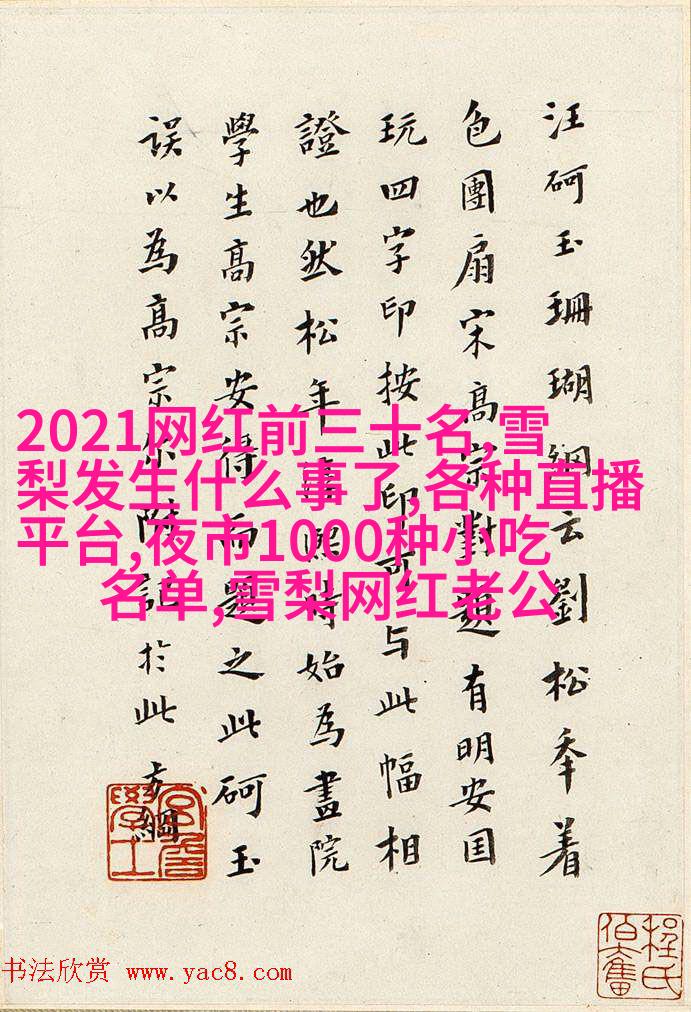 汪砢玉珊瑚網云劉松年着
色團扇宋高宗對題有明安国
玩四字印按此印可与此幅相
證也然松年熙時始為畫院
學生高宗安得而題之此砢玉
誤以為高宗尔附記於此 方綱
2021网红前三十名,雪
梨发生什么事了,各种直播
平台,夜市1000种小吃
名单,雪梨网红老公
宮詹學士
程氏伯奮
书法欣赏 www.yac8.com